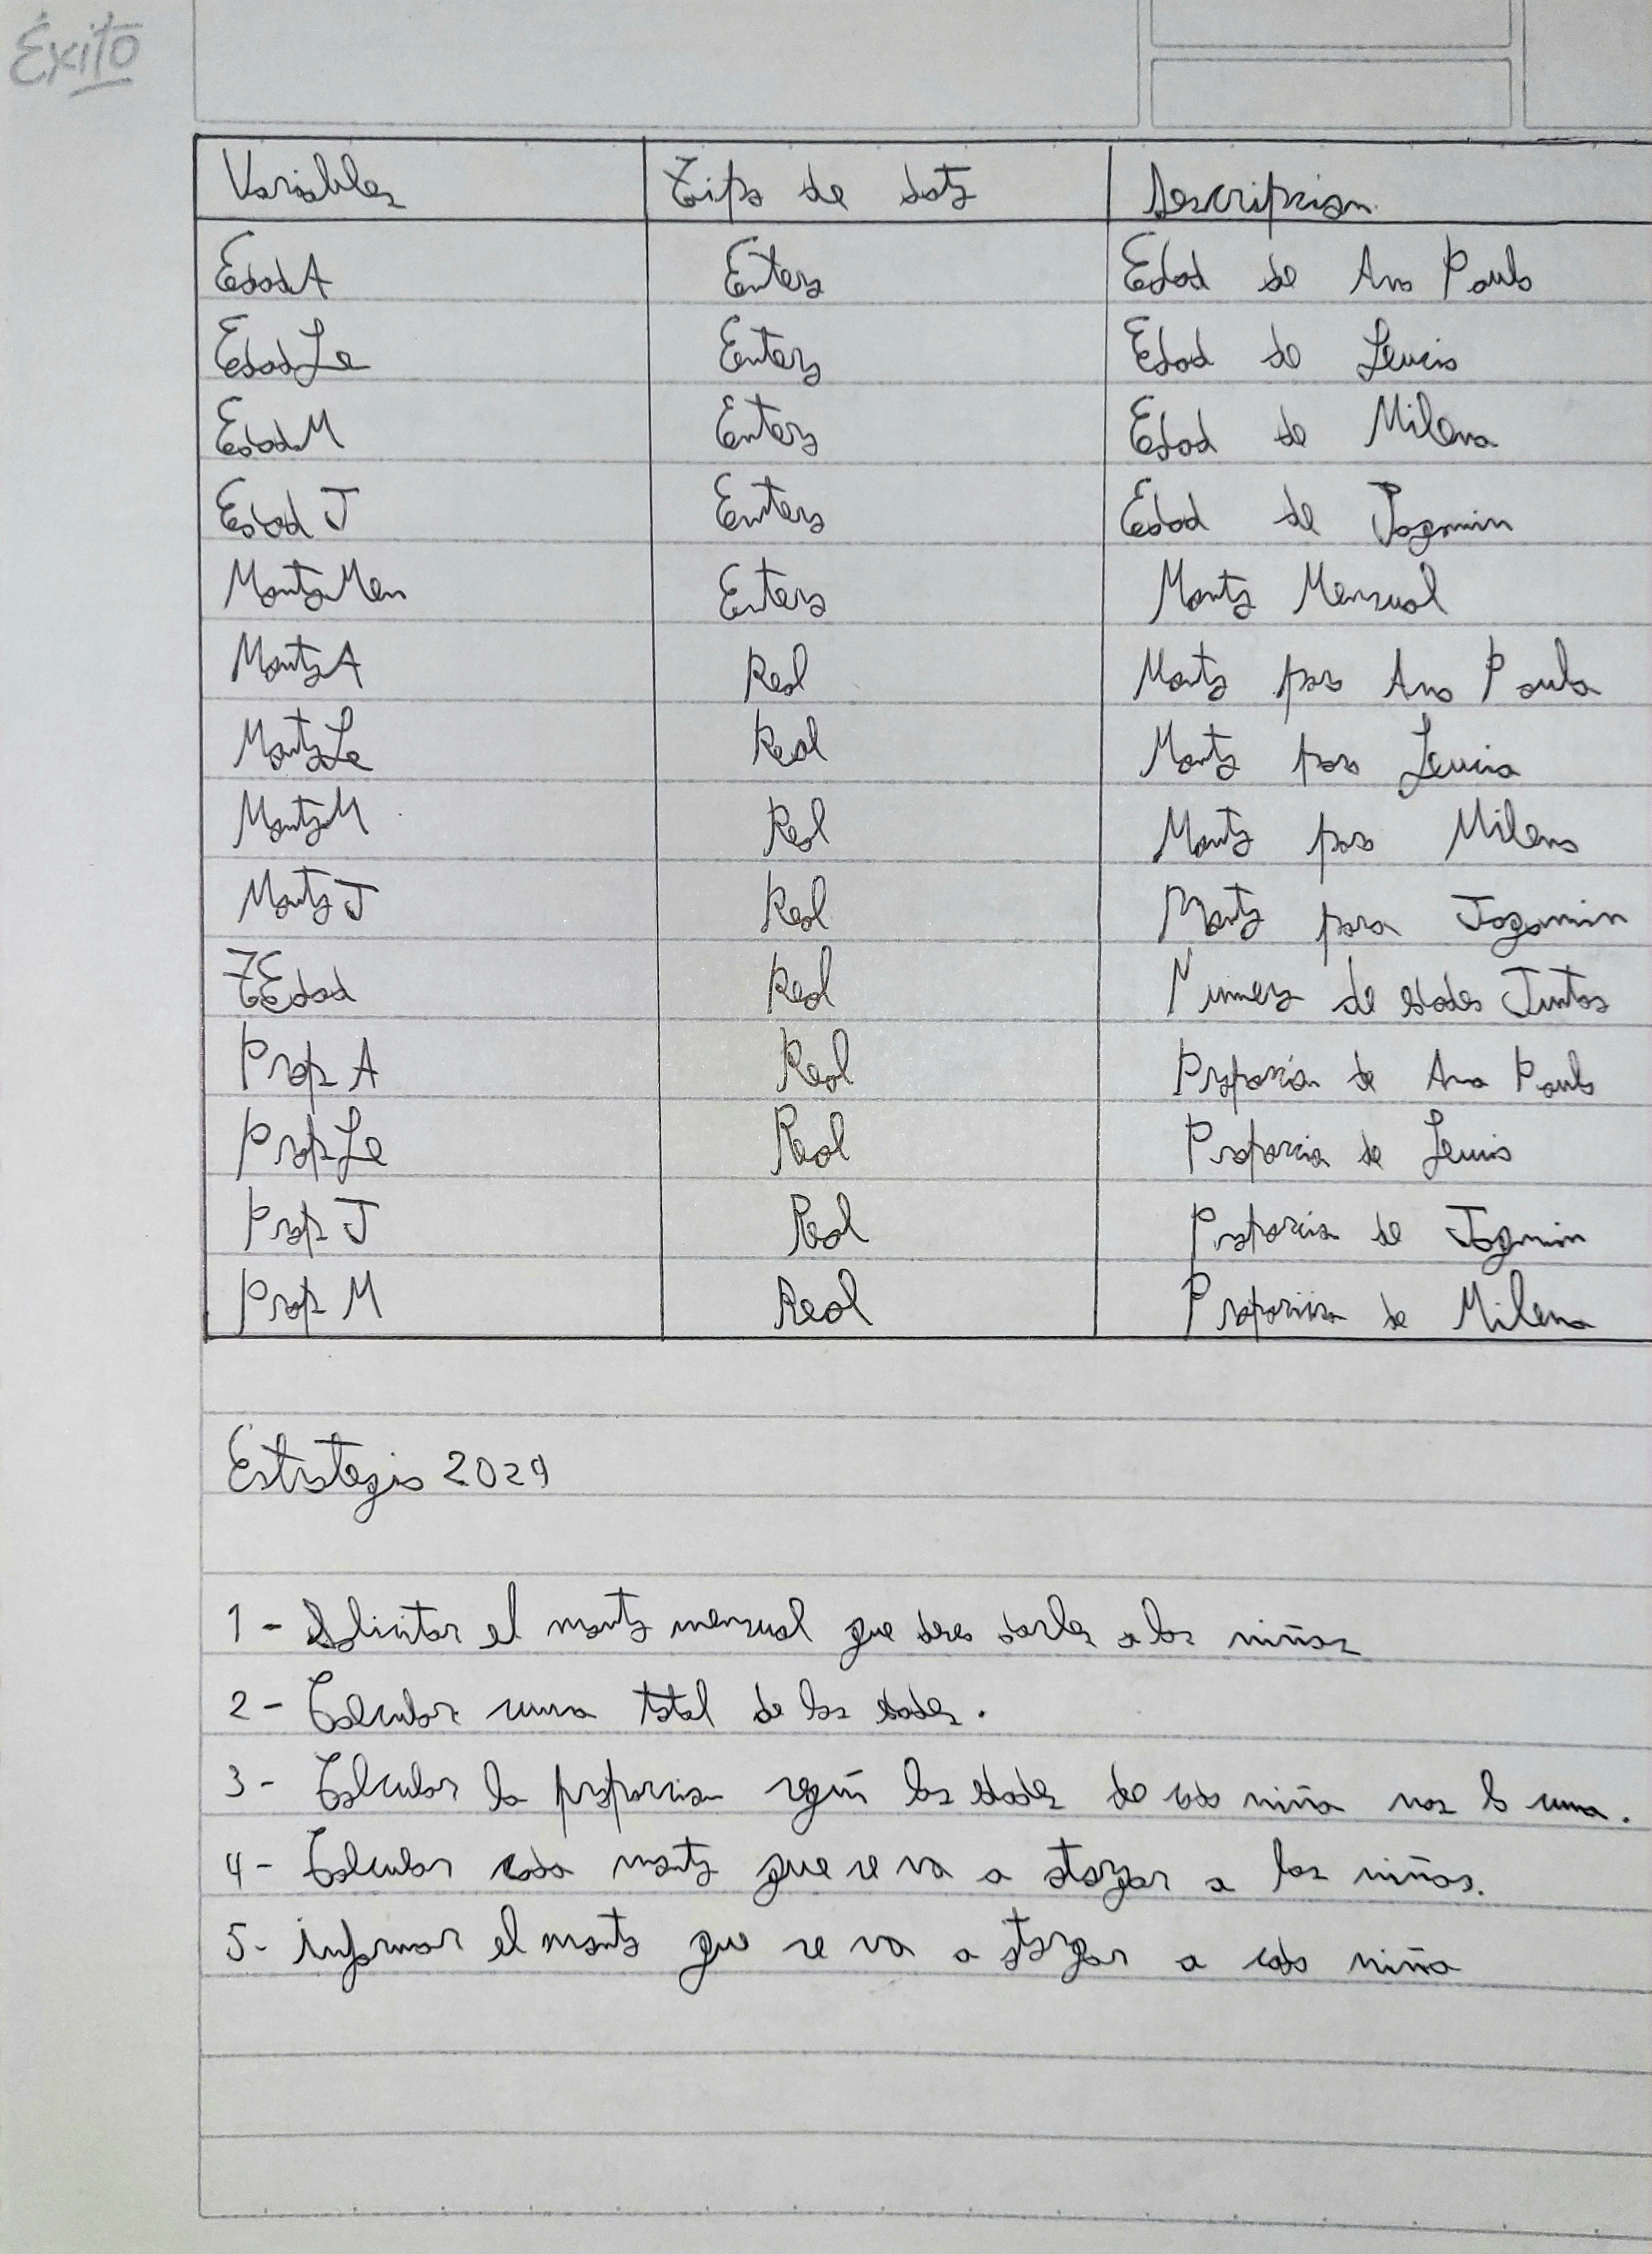 Éxito
Variables Tipo de dato Descripcion
EdadA Entero Edad de Ana Paula
EdadLe Entero Edad de Leucia
EdadM Entero Edad de Milena
Edad J Entero Edad de Jazmin
MontoMen Entero Monto Mensual
MontoA Real Monto para Ana Paula
MontoLe Real Monto para Leucia
MontoM Real Monto para Milena
Monto J Real Monto para Jazmin
TEdad Real Numero de edades Juntas
Prop A Real Proporcion de Ana Paula
Prop Le Real Proporcion de Leucia
Prop J Real Proporcion de Jazmin
Prop M Real Proporcion de Milena
Estrategia 2029
1 - Solicitar el monto mensual que desea darles a las niñas
2 - Calcular suma total de las edades.
3 - Calcular la proporcion según las edades de cada niña la suma.
4 - Calcular cada monto que se va a otorgar a las niñas.
5- informar el monto que se va a otorgar a cada niña